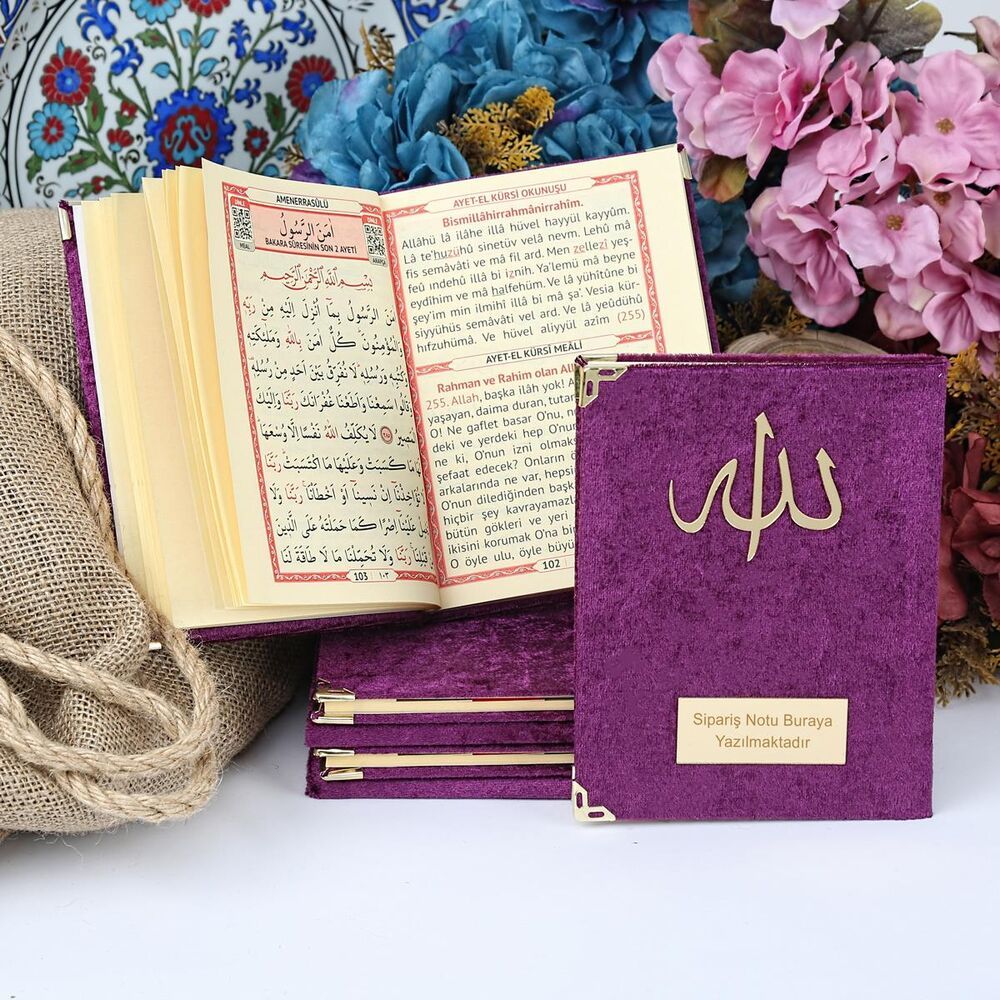 AMENERRASÛLÜ
اٰمَنَ الرَّسُولُ
BAKARA SÛRESİNİN SON 2 AYETİ
MEAL
بِسْمِ اللّٰهِ الرَّحْمٰنِ الرَّحٖيمِ
اٰمَنَ الرَّسُولُ بِمَٓا اُنْزِلَ اِلَيْهِ مِنْ رَبِّهٖ
وَالْمُؤْمِنُونَ كُلٌّ اٰمَنَ بِاللّٰهِ وَمَلٰٓئِكَتِهٖ
وَكُتُبِهٖ وَرُسُلِهٖ لَا نُفَرِّقُ بَيْنَ اَحَدٍ مِنْ رُسُلِهٖ
وَقَالُوا سَمِعْنَا وَاَطَعْنَا غُفْرَانَكَ رَبَّنَا وَاِلَيْكَ
الْمَصٖيرُ لَا يُكَلِّفُ اللّٰهُ نَفْسًا اِلَّا وُسْعَهَا
لَهَا مَا كَسَبَتْ وَعَلَيْهَا مَا اكْتَسَبَتْ رَبَّنَا
لَا تُؤَاخِذْنَٓا اِنْ نَسٖينَٓا اَوْ اَخْطَاْنَا رَبَّنَا وَلَا
تَحْمِلْ عَلَيْنَٓا اِصْرًا كَمَا حَمَلْتَهُ عَلَى الَّذٖينَ
مِنْ قَبْلِنَا رَبَّنَا وَلَا تُحَمِّلْنَا مَا لَا طَاقَةَ لَنَا
103 ١٠٣
AYET-EL KÜRSİ OKUNUŞU
Bismillâhirrahmânirrahîm.
Allâhü lâ ilâhe illâ hüvel hayyül kayyûm.
Lâ te'huzühû sinetüv velâ nevm. Lehû mâ
fis semâvâti ve mâ fil ard. Men zellezi yeş-
feû ındehû illâ bi iznih. Ya'lemü mâ beyne
eydihim ve mâ halfehüm. Ve lâ yühîtûne bi
şey'im min ilmihi illâ bi mâ şa'. Vesia kür-
siyyühüs semâvâti vel ard. Ve lâ yeûdühû
hıfzuhümâ. Ve hüvel aliyyül azim (255)
AYET-EL KÜRSİ MEÂLİ
Rahman ve Rahim olan
255. Allah, başka ilâh yok!
yaşayan, daima duran,
O! Ne gaflet basar O'nu,
deki ve yerdeki hep
ne ki, O'nun izni
şefaat edecek? Onların
arkalarında ne var,
O'nun dilediğinden
hiçbir şey kavrayamaz
bütün gökleri ve yeri
ikisini korumak O'na
O öyle ulu, öyle
102
الله
Sipariş Notu Buraya
Yazılmaktadır